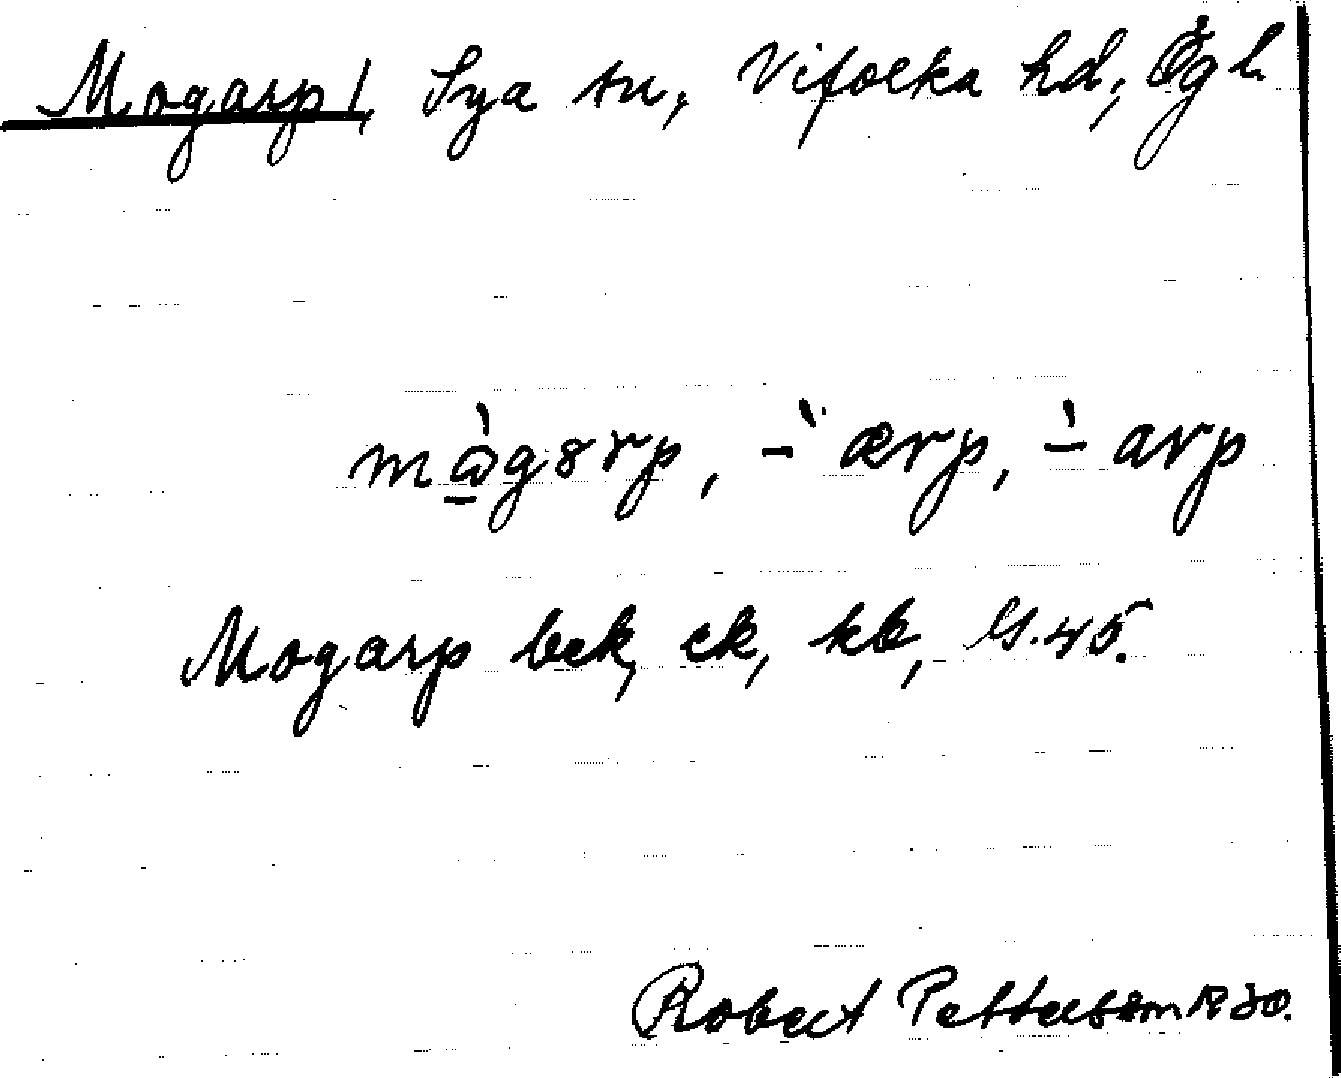 Mogarp 1, Sya sn, Vifolka hd, Ögl.
mògȣrp, -̀ ærp, -̀ arp
Mogarp bek, ek, kb, G.45.
Robert Petterson 1930.